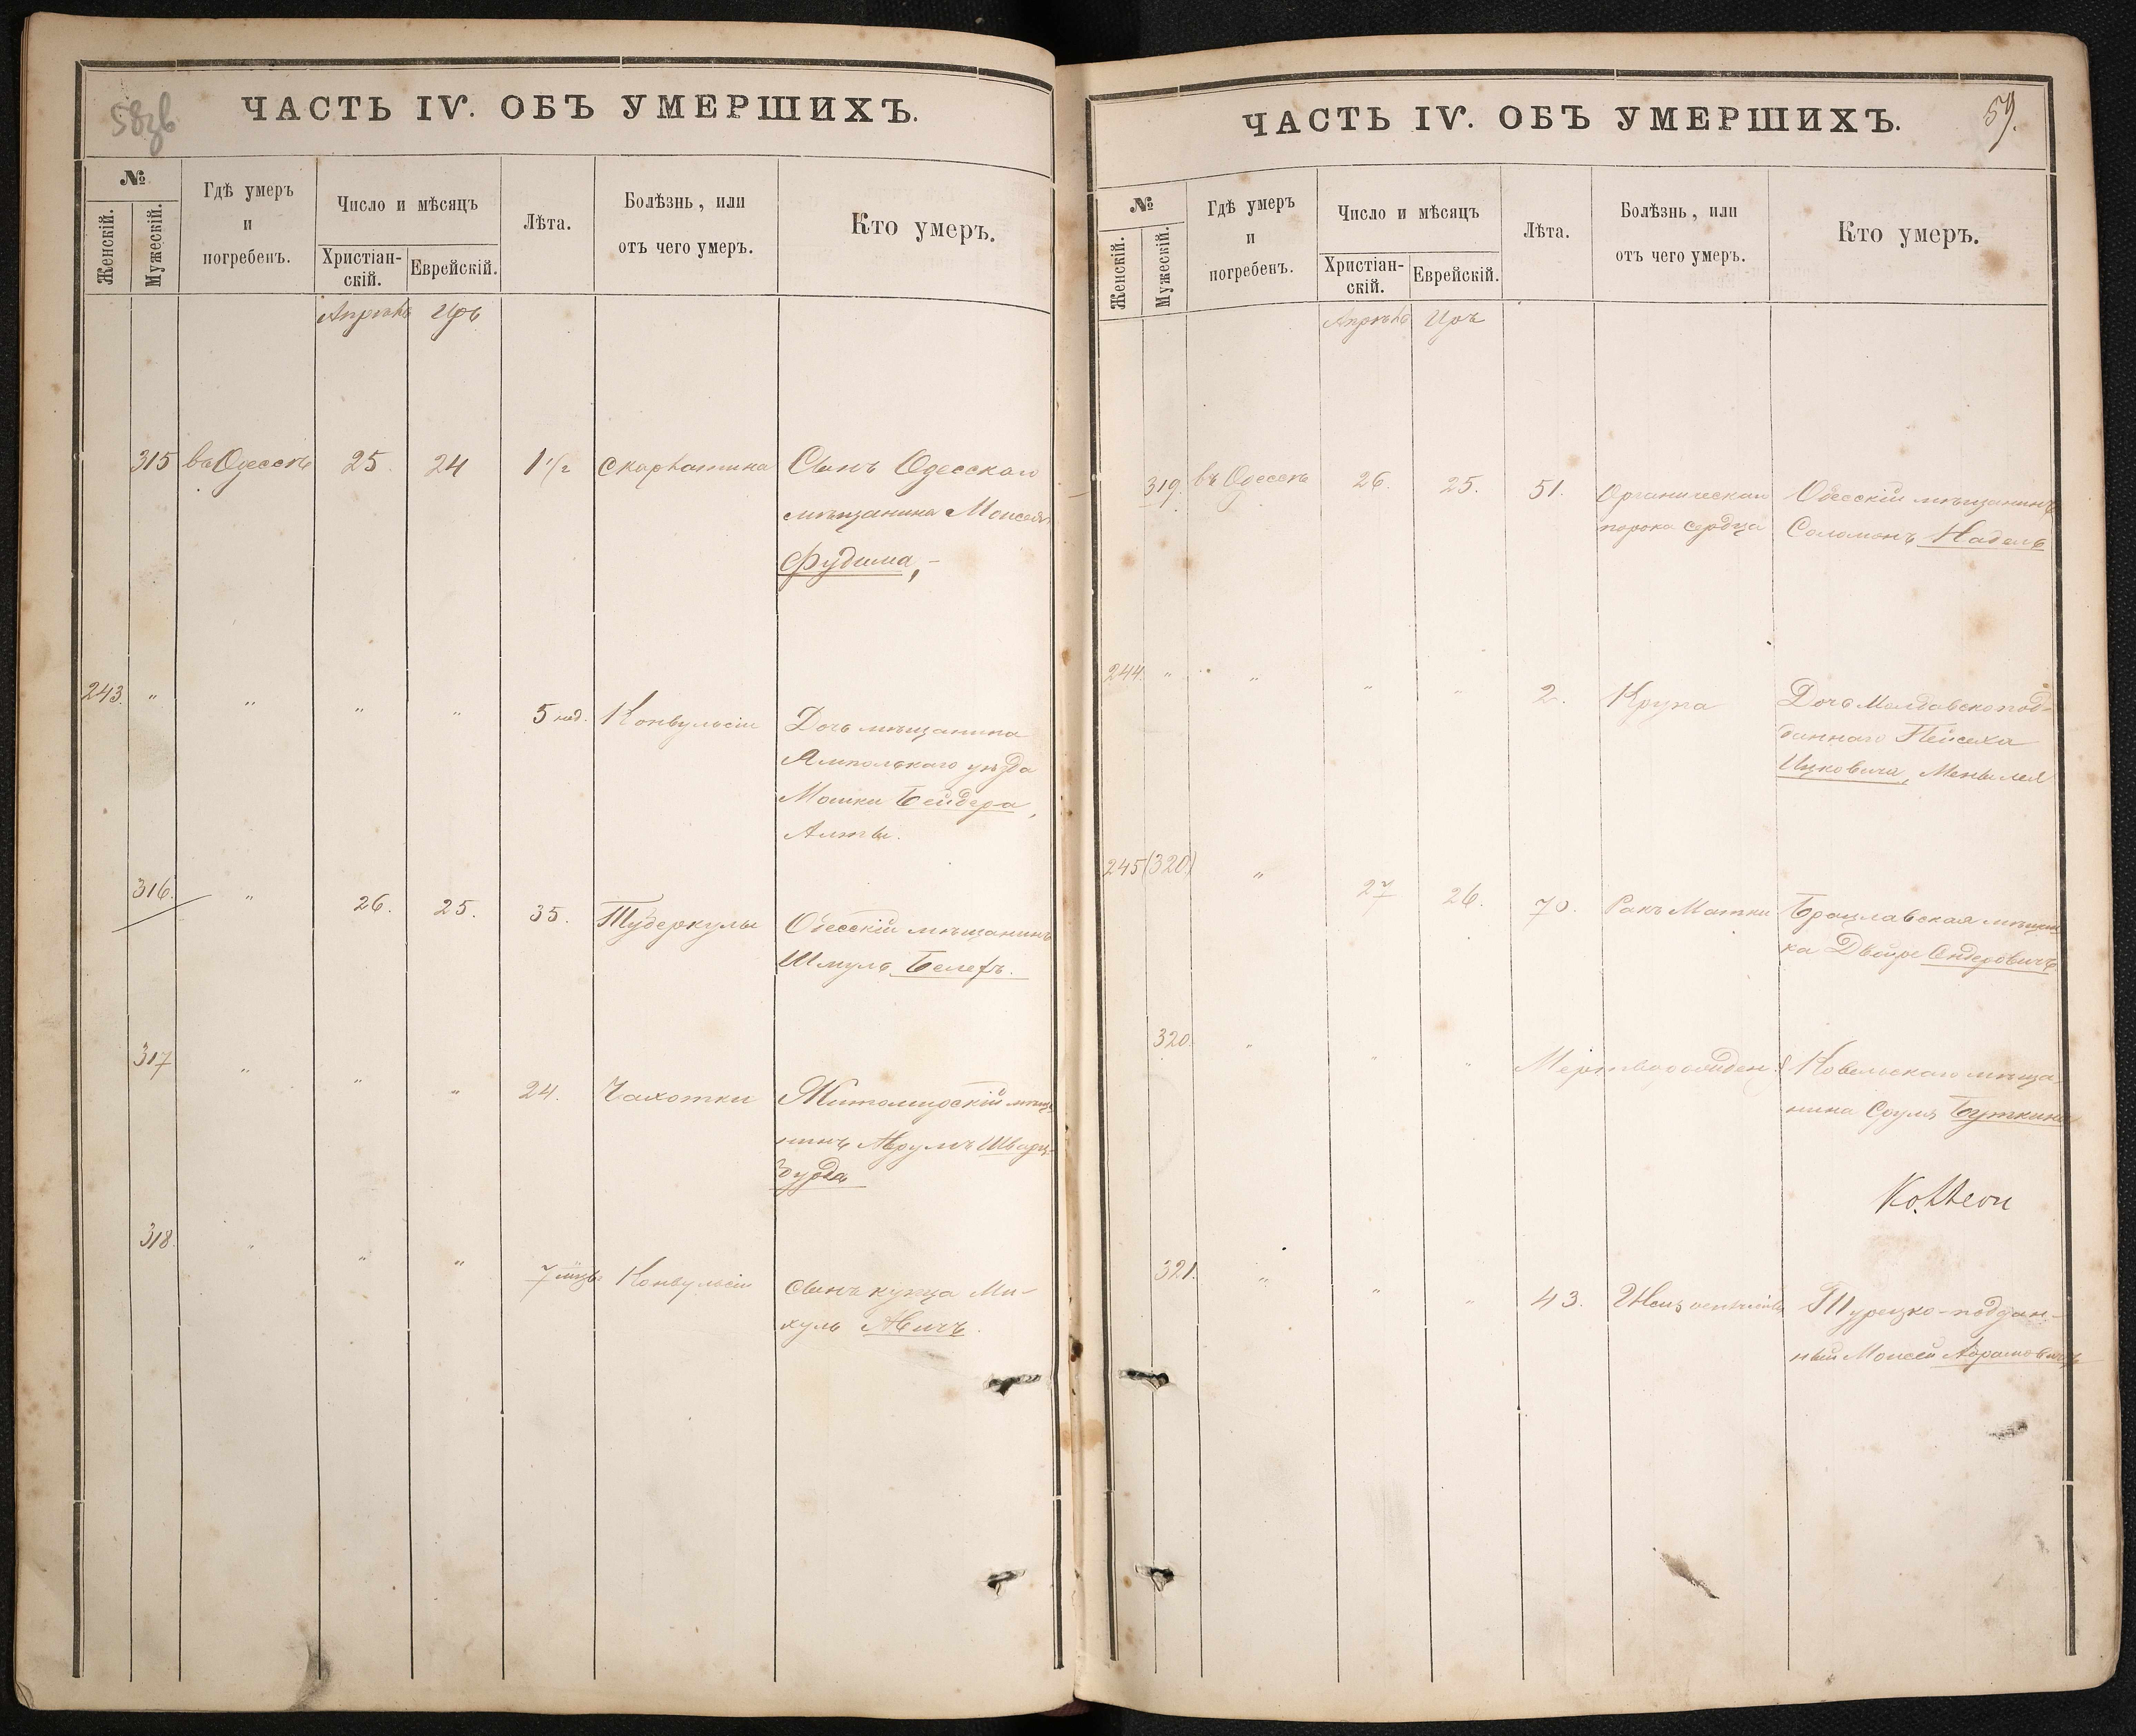 58зв
ЧАСТЬ IV. ОБЪ УМЕРШИХЪ.
№
Женскій.
Мужескій.
Гдѣ умеръ
и
погребенъ.
Число и мѣсяцъ
Христіан-
скій.
Еврейскій.
Лѣта.
Болѣзнь, или
отъ чего умеръ.
Кто умеръ.
Апрѣль Иръ
315 въ Одессѣ 25. 24 1 1/2 Скарлатина Сынъ Одесскаго
мѣщанина Моисея
Фудима,-
243. " " " " 5 нед. Конвульсіи Дочь мѣщанина
Ямпольскаго уѣзда
Мошки Бейдера,
Алты.
316. " 26. 25. 35. Туберкулы Одесскій мѣщанинъ
Шмуль Белефъ.
317 " " " 24. Чахотки Житомирскій мѣща
нинъ Аврумъ Шварц-
бурда
318. " " " 7 мцъ. Конвульсіи Сынъ купца Ми-
хуль Авичъ.
ЧАСТЬ IV. ОБЪ УМЕРШИХЪ.
59.
№
Женскій.
Мужескій.
Гдѣ умеръ
и
погребенъ.
Число и мѣсяцъ
Христіан-
скій.
Еврейскій.
Лѣта.
Болѣзнь, или
отъ чего умеръ.
Кто умеръ.
Апрѣль Иръ
319. въ Одессѣ 26. 25. 51. Органическая Одесскій мѣщанинъ
порока сердца Соломонъ Надель
244. " " " " 2. Крупа Дочь Молдавскопод-
даннаго Пейсаха
Ицковича,
245 (320.) " 27 26. 70. Ракъ Матки Брацлавская мѣщан
ка Двойра
320. " " " Мертворожден. Ковельскаго мѣща-
нина Сруля Буткина
321. " " " 43. Турецко-поддан-
ный Моисей Абрамовичъ